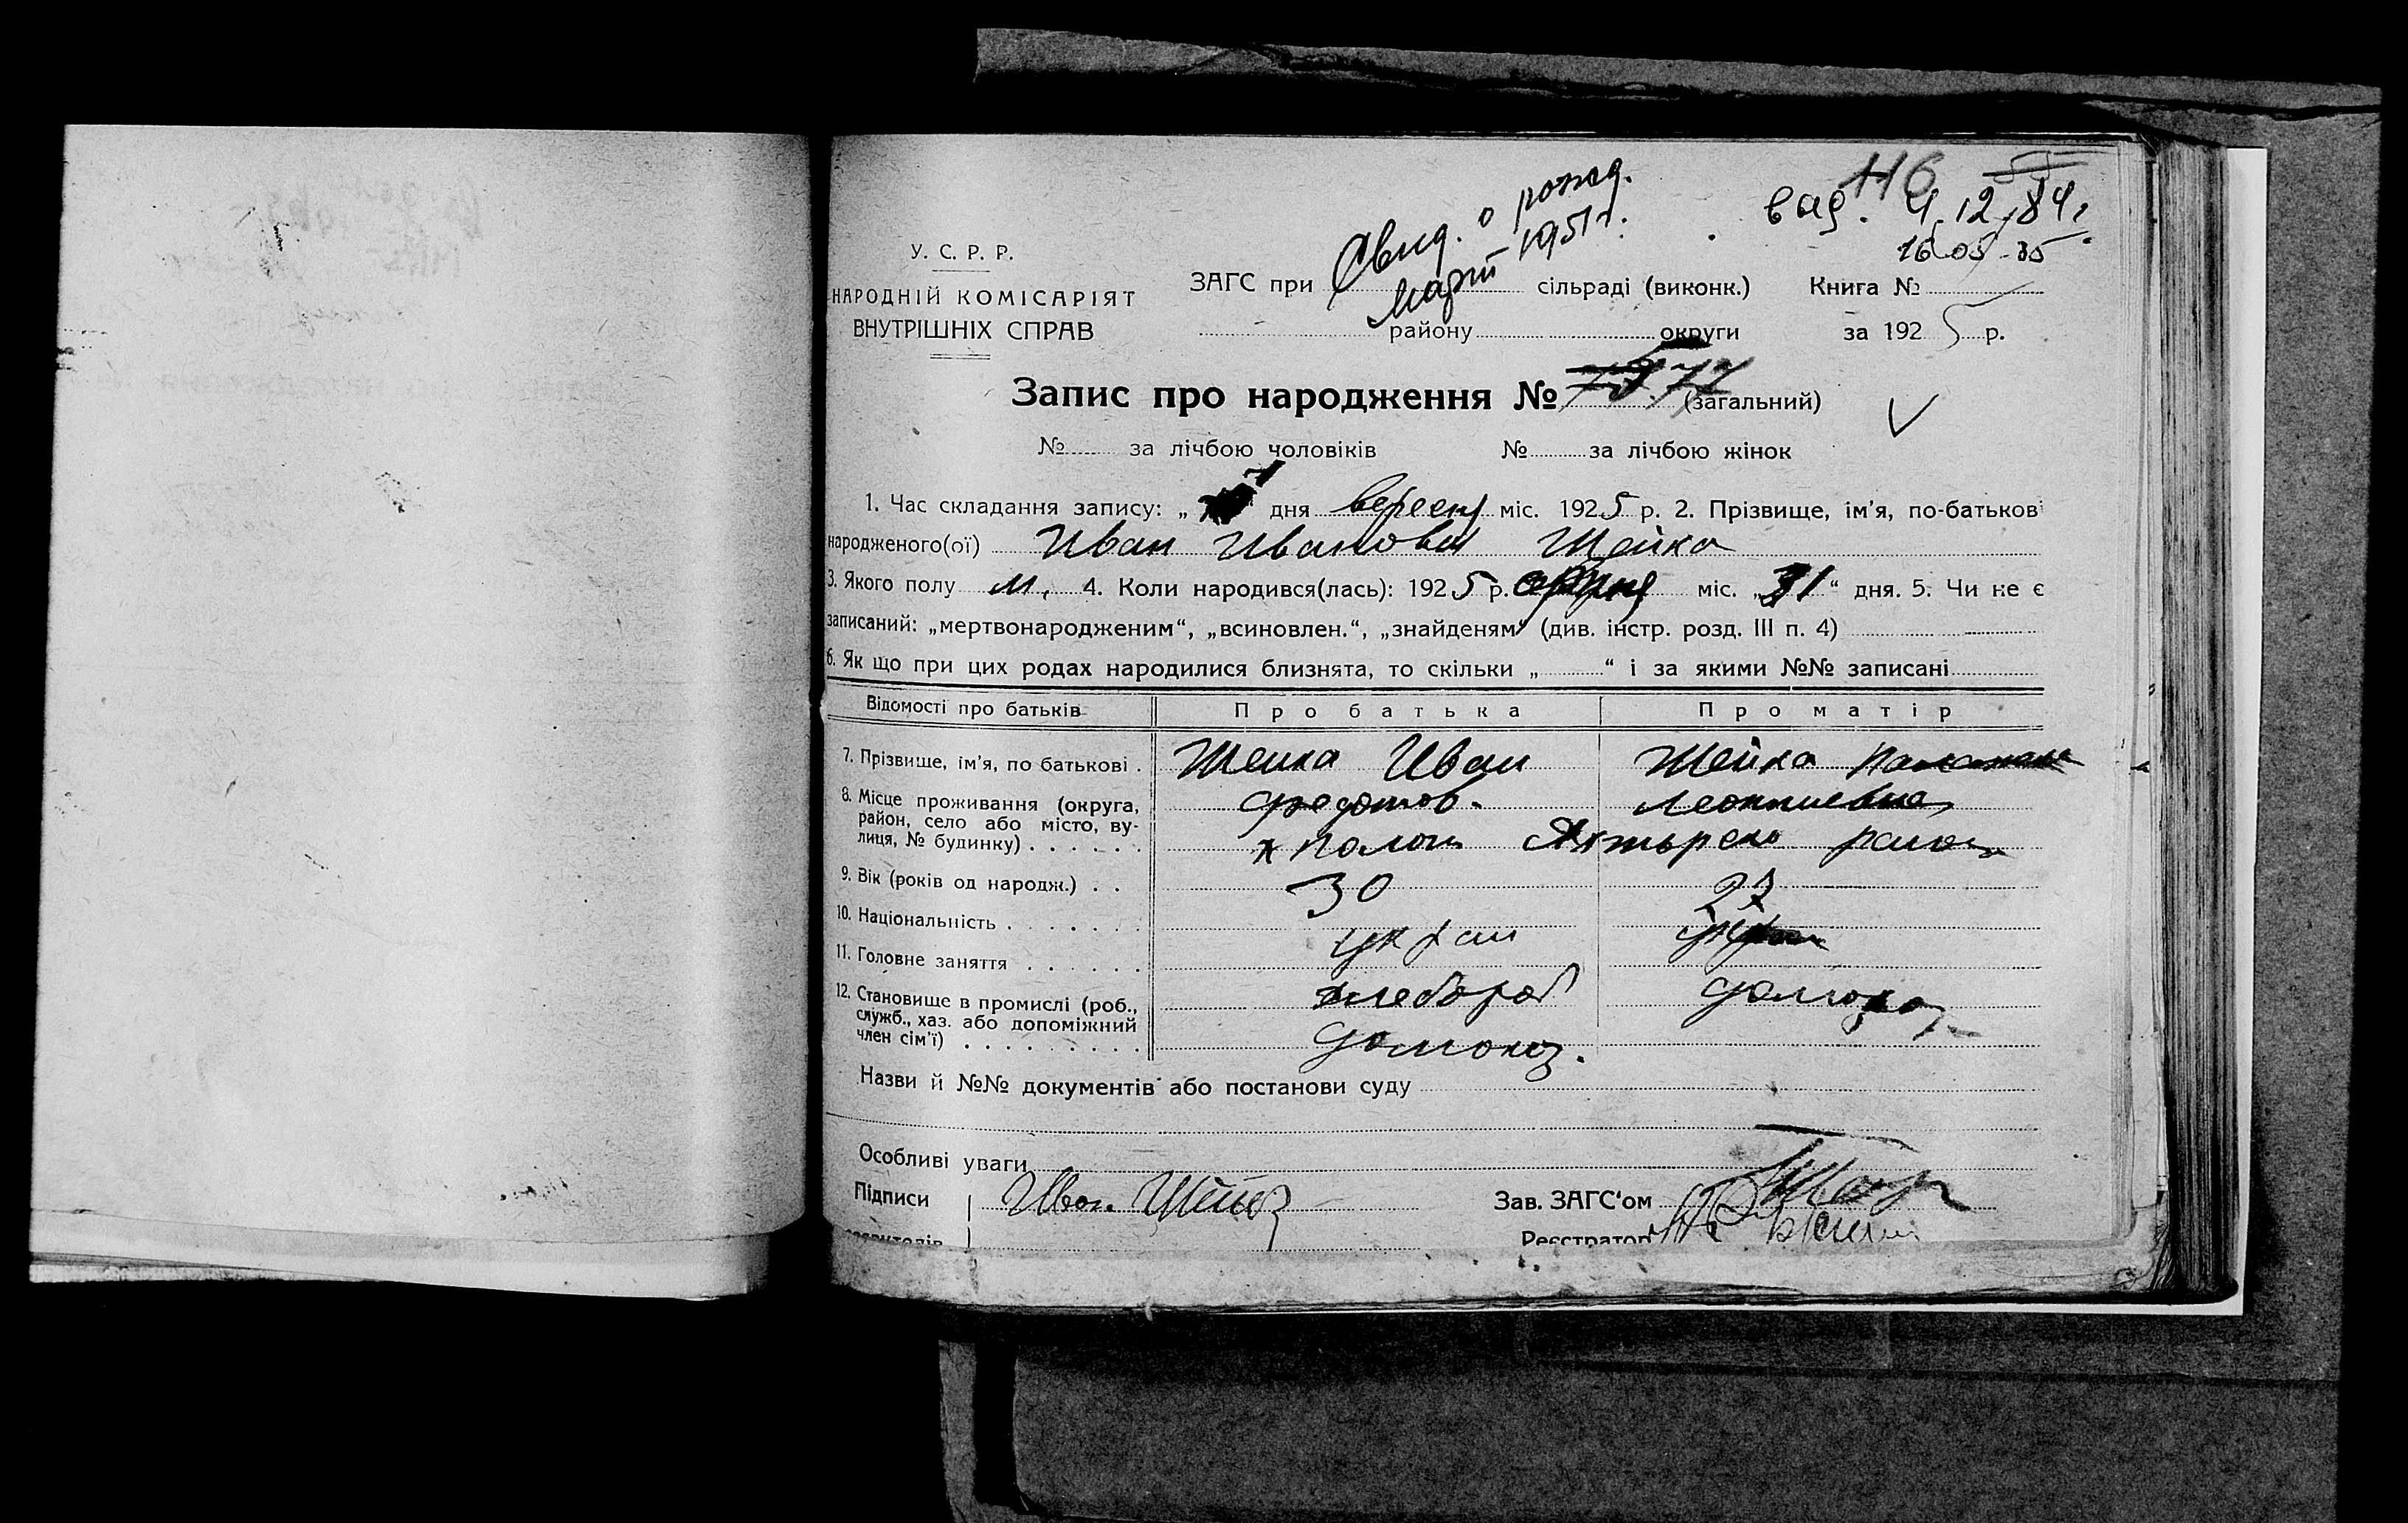 116
вид. 4.12.84г
16.05-35
Свид. о рожд.
март 1951г.
У. С. Р. Р.
НАРОДНІЙ КОМІСАРІЯТ
ВНУТРІШНІХ СПРАВ
ЗАГС при сільраді (виконк.) Книга №
району округи за 1925 р.
Запис про народження № 77 (загальний)
№ за лічбою чоловіків № за лічбою жінок
1. Час складання запису: „ 1 дня вересня міс. 1925 р. 2. Прізвище, ім’я, по-батькові
народженого(ої) Иван Иванович Шейка
3. Якого полу м. 4. Коли народився(лась): 1925 р. серпня міс. „31“ дня. 5. Чи не є
записаний: „мертвонародженим“, „всиновлен.“, „знайденям“ (див. інстр. розд. III п. 4)
6. Як що при цих родах народилися близнята, то скільки „ “ і за якими №№ записані
Відомості про батьків Про батька Про матір
7. Прізвище, ім’я, по батькові . Шейка Иван Шейка
8. Місце проживання (округа, Федотов. Леонтиевна
район, село або місто, ву-
лиця, № будинку) . . . . . . х Ахтырско район
9. Вік (років од народж.) . . 30 27
10. Національність . . . . . . . украи украи
11. Головне заняття . . . . . . хлебороб домохоз
12. Становище в промислі (роб.,
служб., хаз. або допоміжний
член сім’ї) . . . . . . . . . домохоз.
Назви й №№ документів або постанови суду
Особливі уваги
Підписи Иван Шейка Зав. ЗАГС‘ом
Реєстратор